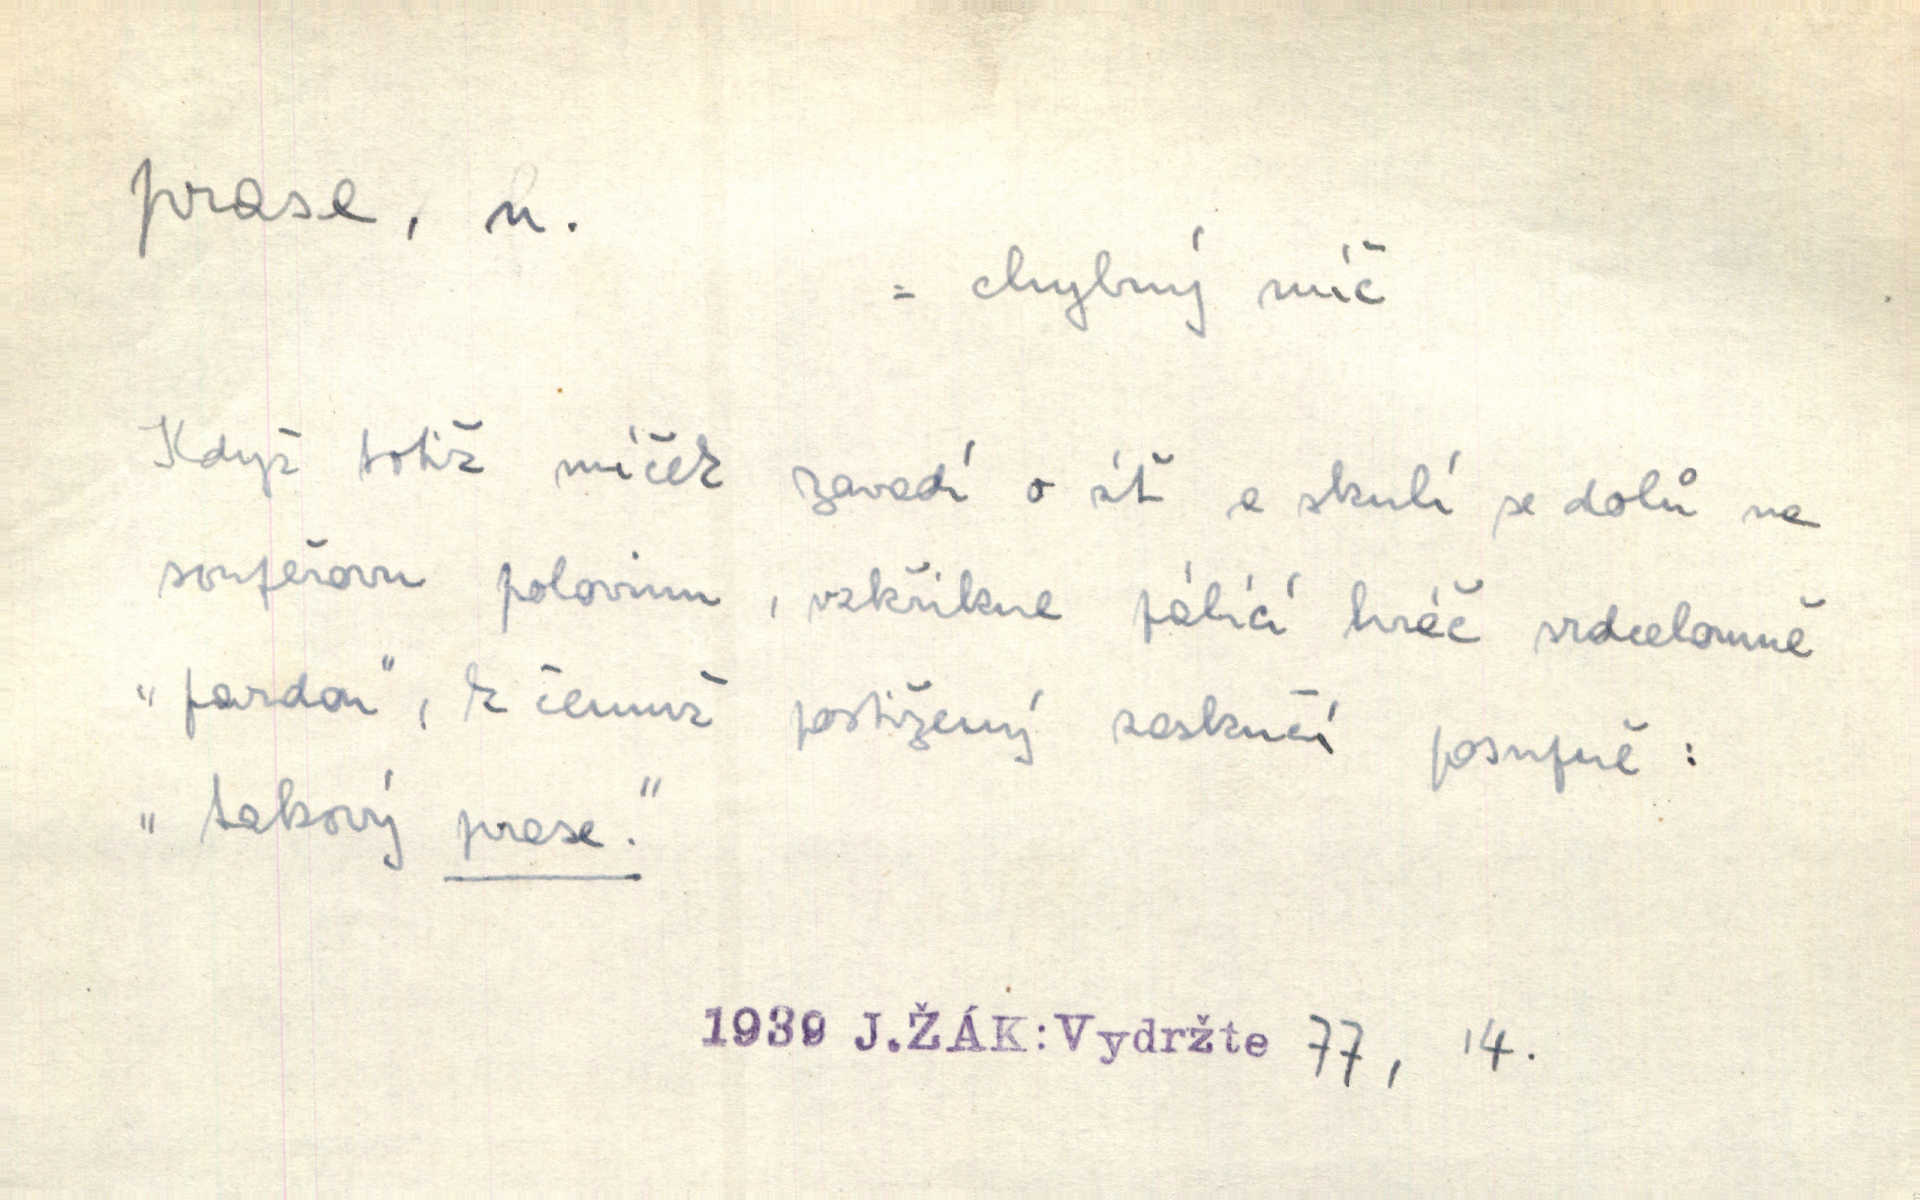 prase, n.
= chybný míč
Když totiž míček zavadí o síť a skulí se dolů na
soupeřovu polovinu, vzkřikne pálící hráč srdcelomně
"pardon", k čemuž postižený zaskučí posupně:
"takový prase."
1939 J.ŽÁK:Vydržte 77, 14.